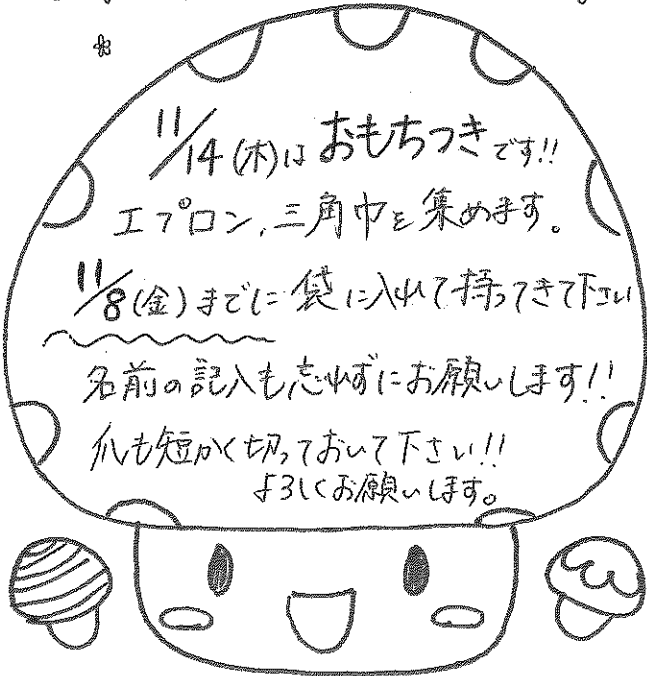 11/14(木)は おもちつきです!!
エプロン,三角巾を集めます。
11/8(金)までに袋に入れて持ってきて下さい
名前の記入も忘れずにお願いします!!
爪も短かく切っておいて下さい!!
よろしくお願いします。